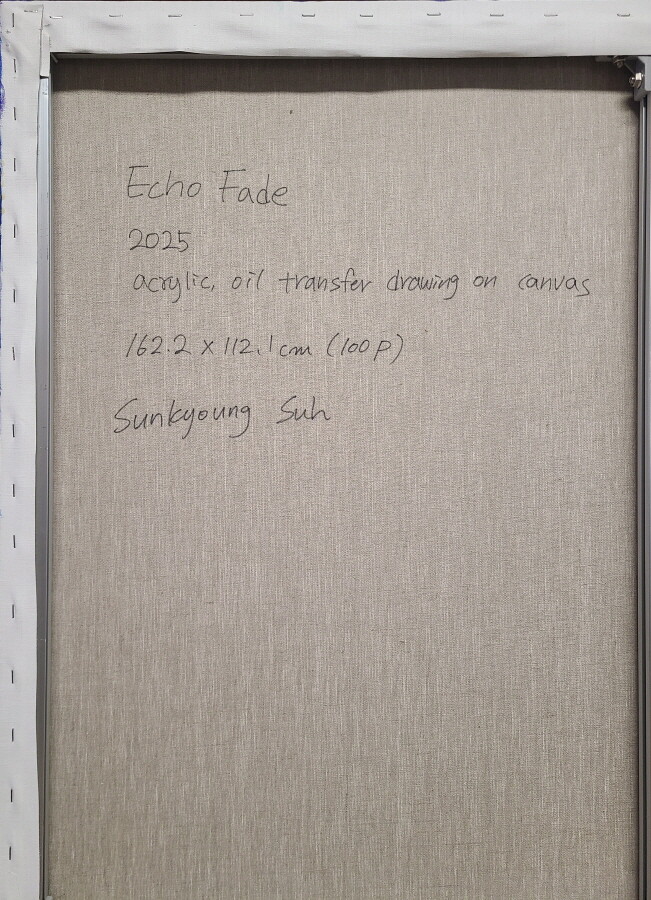 Echo Fade
2025
acrylic, oil transfer drawing on canvas
162.2 x 112.1 cm (100 P)
Sunkyoung Suh